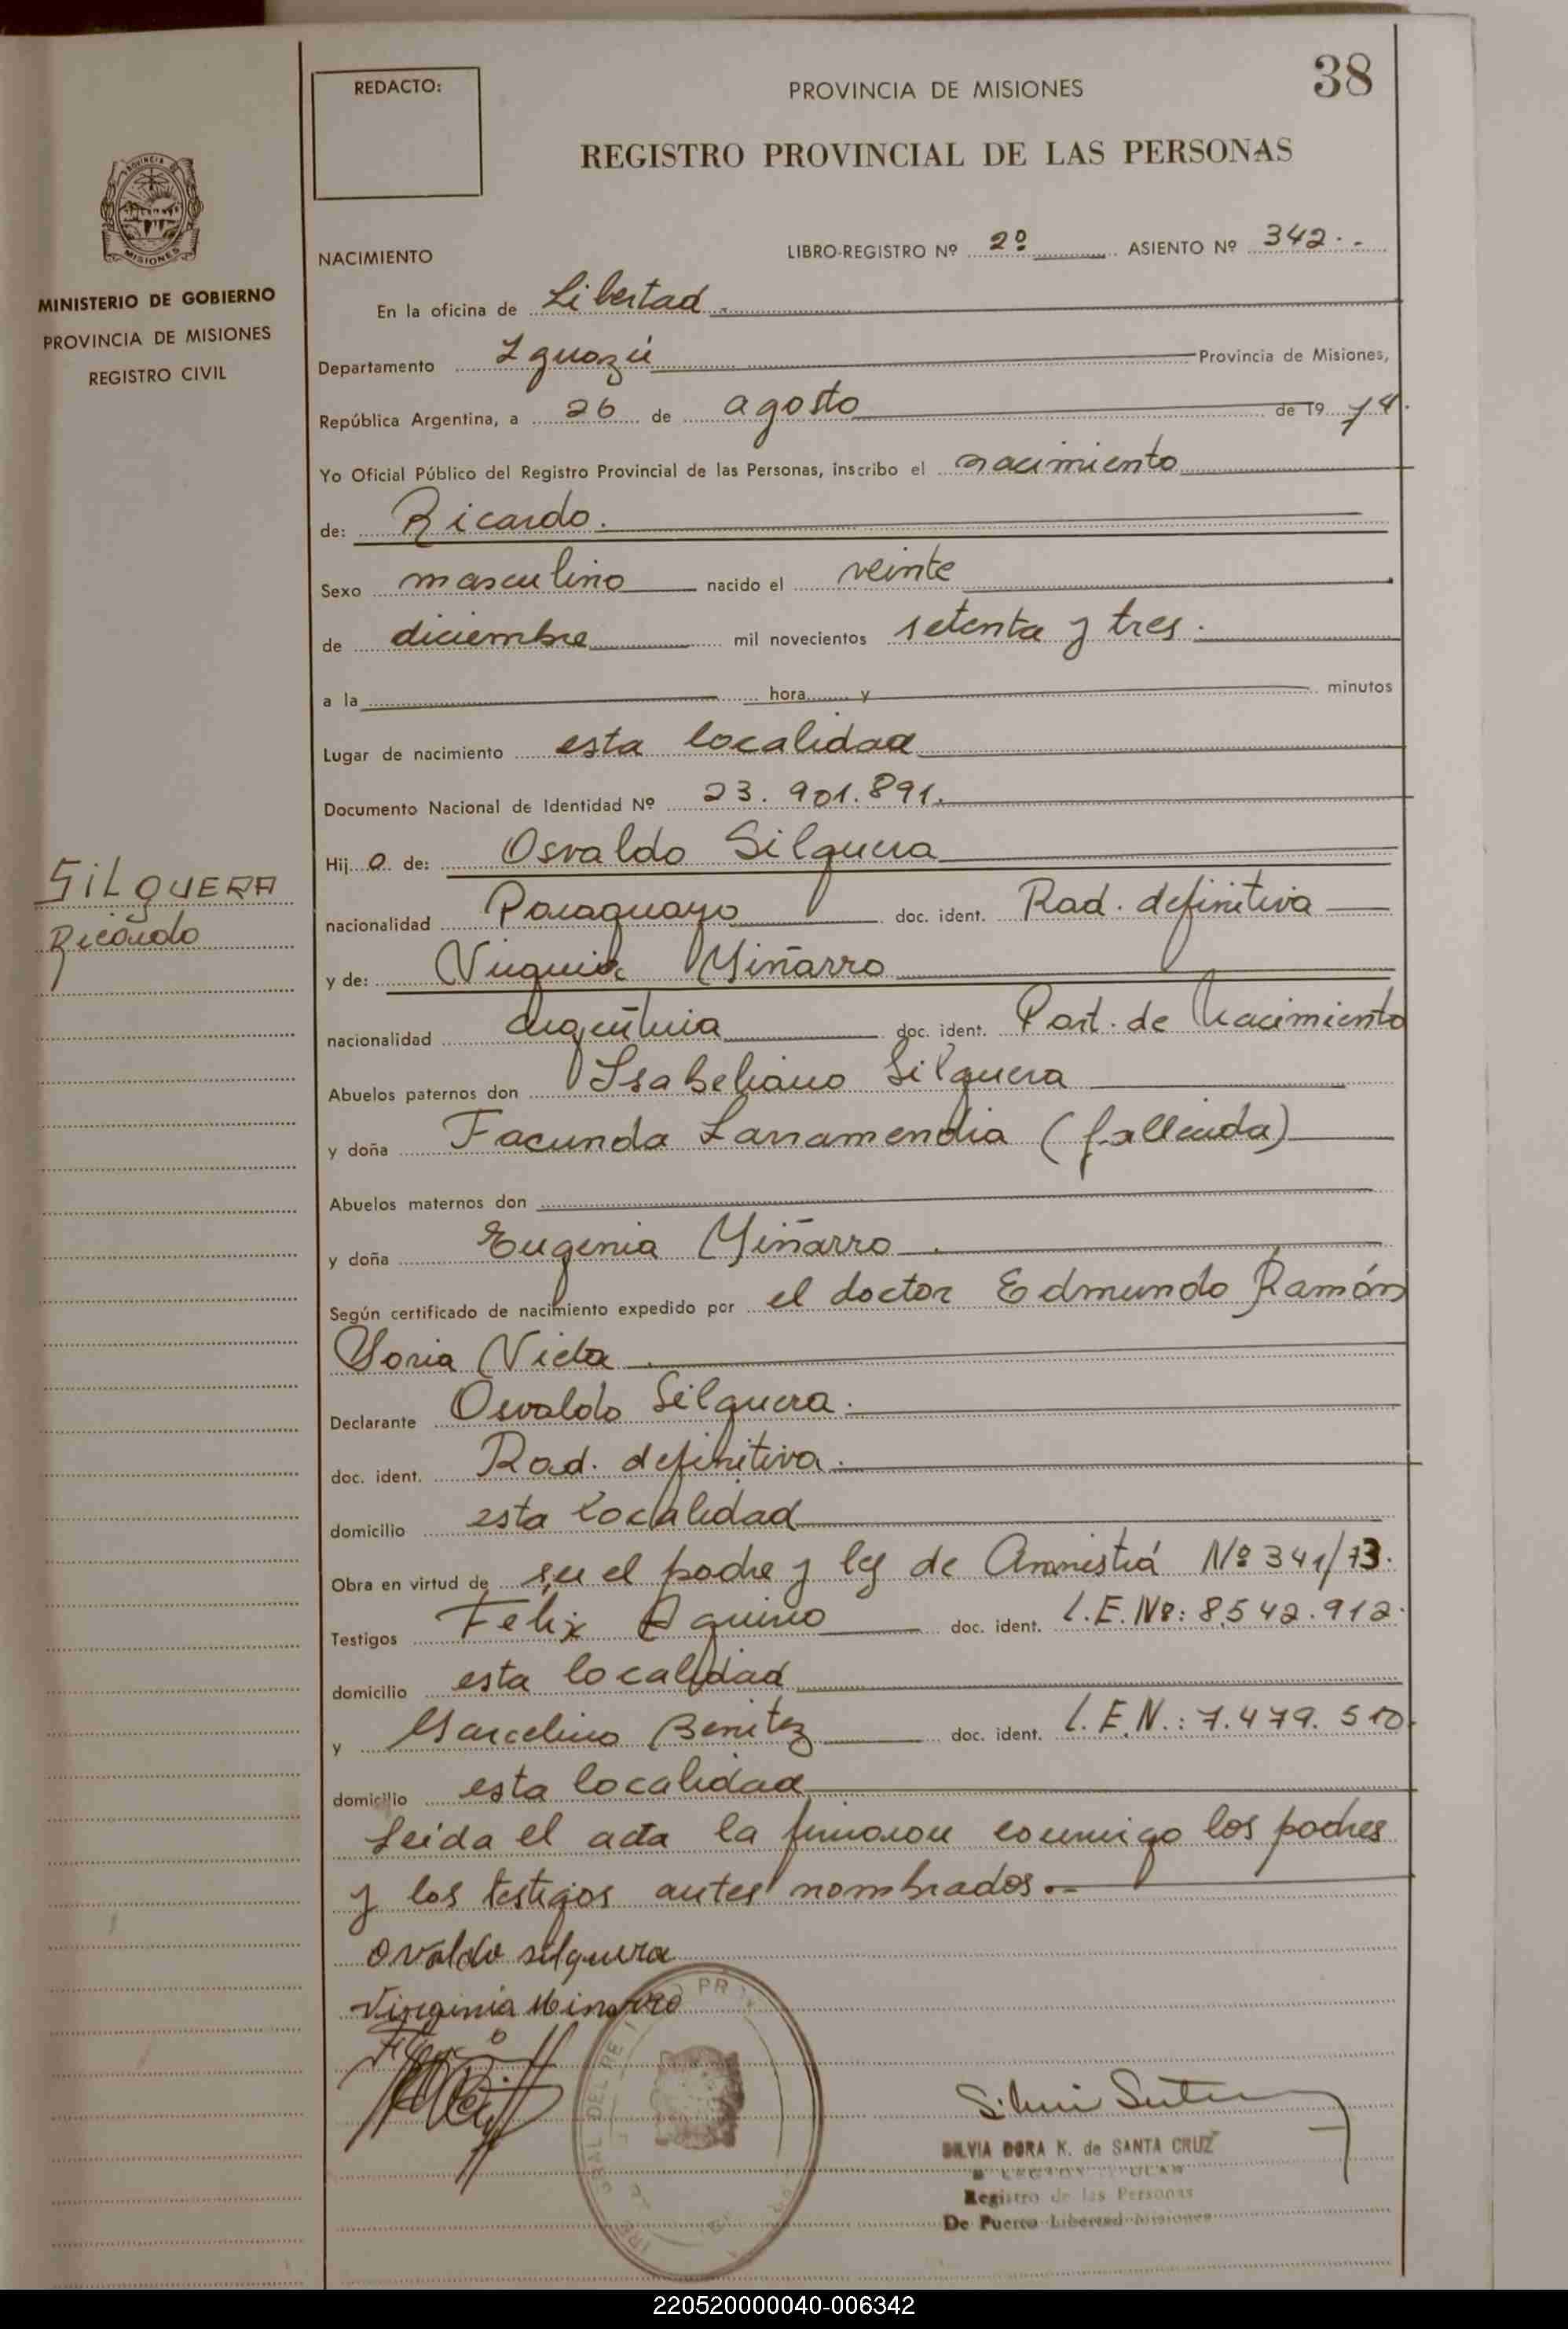 38
REDACTO:
PROVINCIA DE MISIONES
REGISTRO PROVINCIAL DE LAS PERSONAS
PROVINCIA DE
MISIONES
MINISTERIO DE GOBIERNO
PROVINCIA DE MISIONES
REGISTRO CIVIL
NACIMIENTO
LIBRO-REGISTRO Nº 2º ASIENTO Nº 342.-
En la oficina de Libertad.
Departamento Iguazú Provincia de Misiones,
República Argentina, a 26 de agosto de 1974.
Yo Oficial Público del Registro Provincial de las Personas, inscribo el nacimiento
de: Ricardo.
Sexo masculino nacido el veinte
de diciembre mil novecientos setenta y tres.
a la hora y minutos
Lugar de nacimiento esta localidad
Documento Nacional de Identidad Nº 23.901.891.
Hijo de: Osvaldo Silguera
SILGUERA
Ricardo
nacionalidad Paraguayo doc. ident. Rad. definitiva
y de: Virginia Miñarro
nacionalidad argentina doc. ident. Part. de Nacimiento
Abuelos paternos don Isabeliano Silguera
y doña Facunda Larramendia (fallecida)
Abuelos maternos don
y doña Eugenia Miñarro.
Según certificado de nacimiento expedido por el doctor Edmundo Ramón
Soria Vieta.
Declarante Osvaldo Silguera.
doc. ident. Rad. definitiva.
domicilio esta localidad
Obra en virtud de ser el padre y ley de Amnistiá Nº 341/73.
Testigos Felix Aquino doc. ident. L.E. Nº: 8.542.912.
domicilio esta localidad
y Marcelino Benitez doc. ident. L.E.N.: 7.479.510
domicilio esta localidad
Leida el acta la firmaron conmigo los padres
y los testigos antes nombrados.-
Ovaldo silguera
Virginia Minarro
SILVIA DORA K. de SANTA CRUZ
Registro de las Personas
De Puerto Libertad-Misiones
220520000040-006342